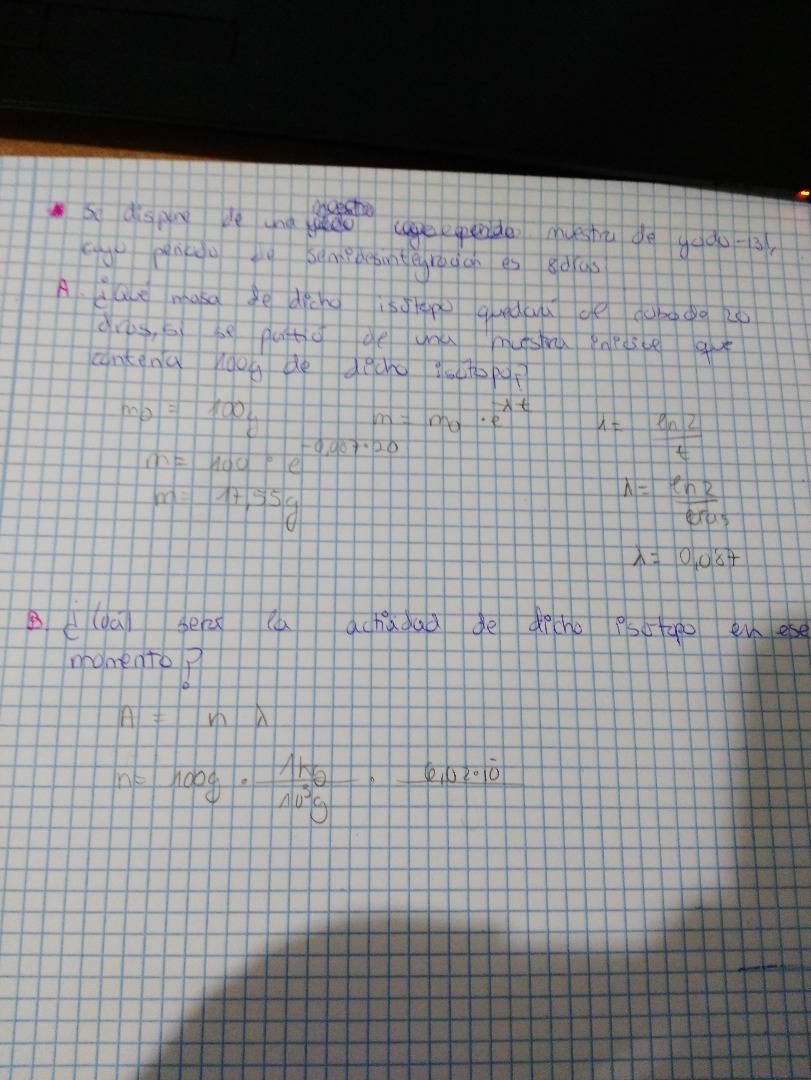 * Se dispone de una muestra de yodo-131,
cuyo periodo de semidesintegración es 8días.
A. ¿Qué masa de dicho isótopo quedará al cabo de 20
días, si se partió de una muestra que
contenía 100g de dicho isotopo?
m₀ = 100g m = m₀ · e^-λt λ= ln2/t
m= 100 · e^-0,087·20
m= 17,55g λ= ln2/8días
λ= 0,087
B. ¿Cuál será la actividad de dicho isótopo en ese
momento?
A = n λ
n= 100g · 1Kg/10³g · 6,02·10